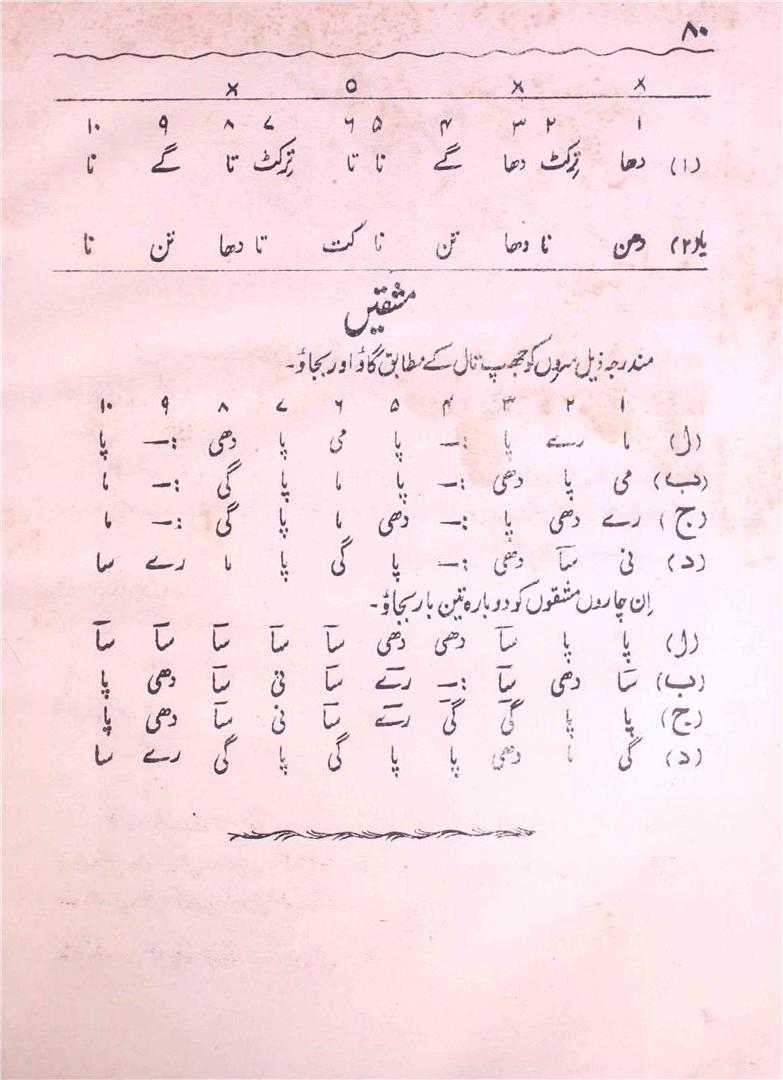 ۸۰
x x o x
۱ ۲ ۳ ۴ ۵ ۶ ۷ ۸ ۹ ۱۰
(۱) دھا تِرکٹ دھا گے نا تا تِرکٹ تا گے نا
یا(۲) دھن نا دھا تن نا کت تا دھا تن نا
مشقیں
مندرجہ ذیل سروں کو جھپ تال کے مطابق گاؤ اور بجاؤ۔
۱ ۲ ۳ ۴ ۵ ۶ ۷ ۸ ۹ ۱۰
(ل) ما رے پا :— پا می پا دھی :— پا
(ب) می پا دھی :— پا ما پا گی :— ما
(ج) رے دھی پا :— دھی ما پا گی :— ما
(د) نی سآ دھی :— پا گی پا ما رے سا
اِن چاروں مشقوں کو دوبارہ تین بار بجاؤ۔
(ل) پا پا سآ دھی دھی سآ سآ سآ سآ سآ
(ب) سآ دھی سآ :— رے سآ نی سآ دھی پا
(ج) پا پا گی گی رے سآ نی سآ دھی پا
(د) گی ما دھی پا پا گی پا گی رے سا